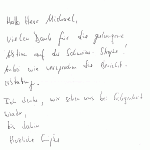 Hallo Herr Michael,
vielen Dank für die gelungene
Aktion auf der Schwäb.
Anbei wie versprochen die Bericht-
erstattung.
Ich denke, wir sehen uns bei Gelegenheit
wieder,
bis dahin
Herzliche Grüße